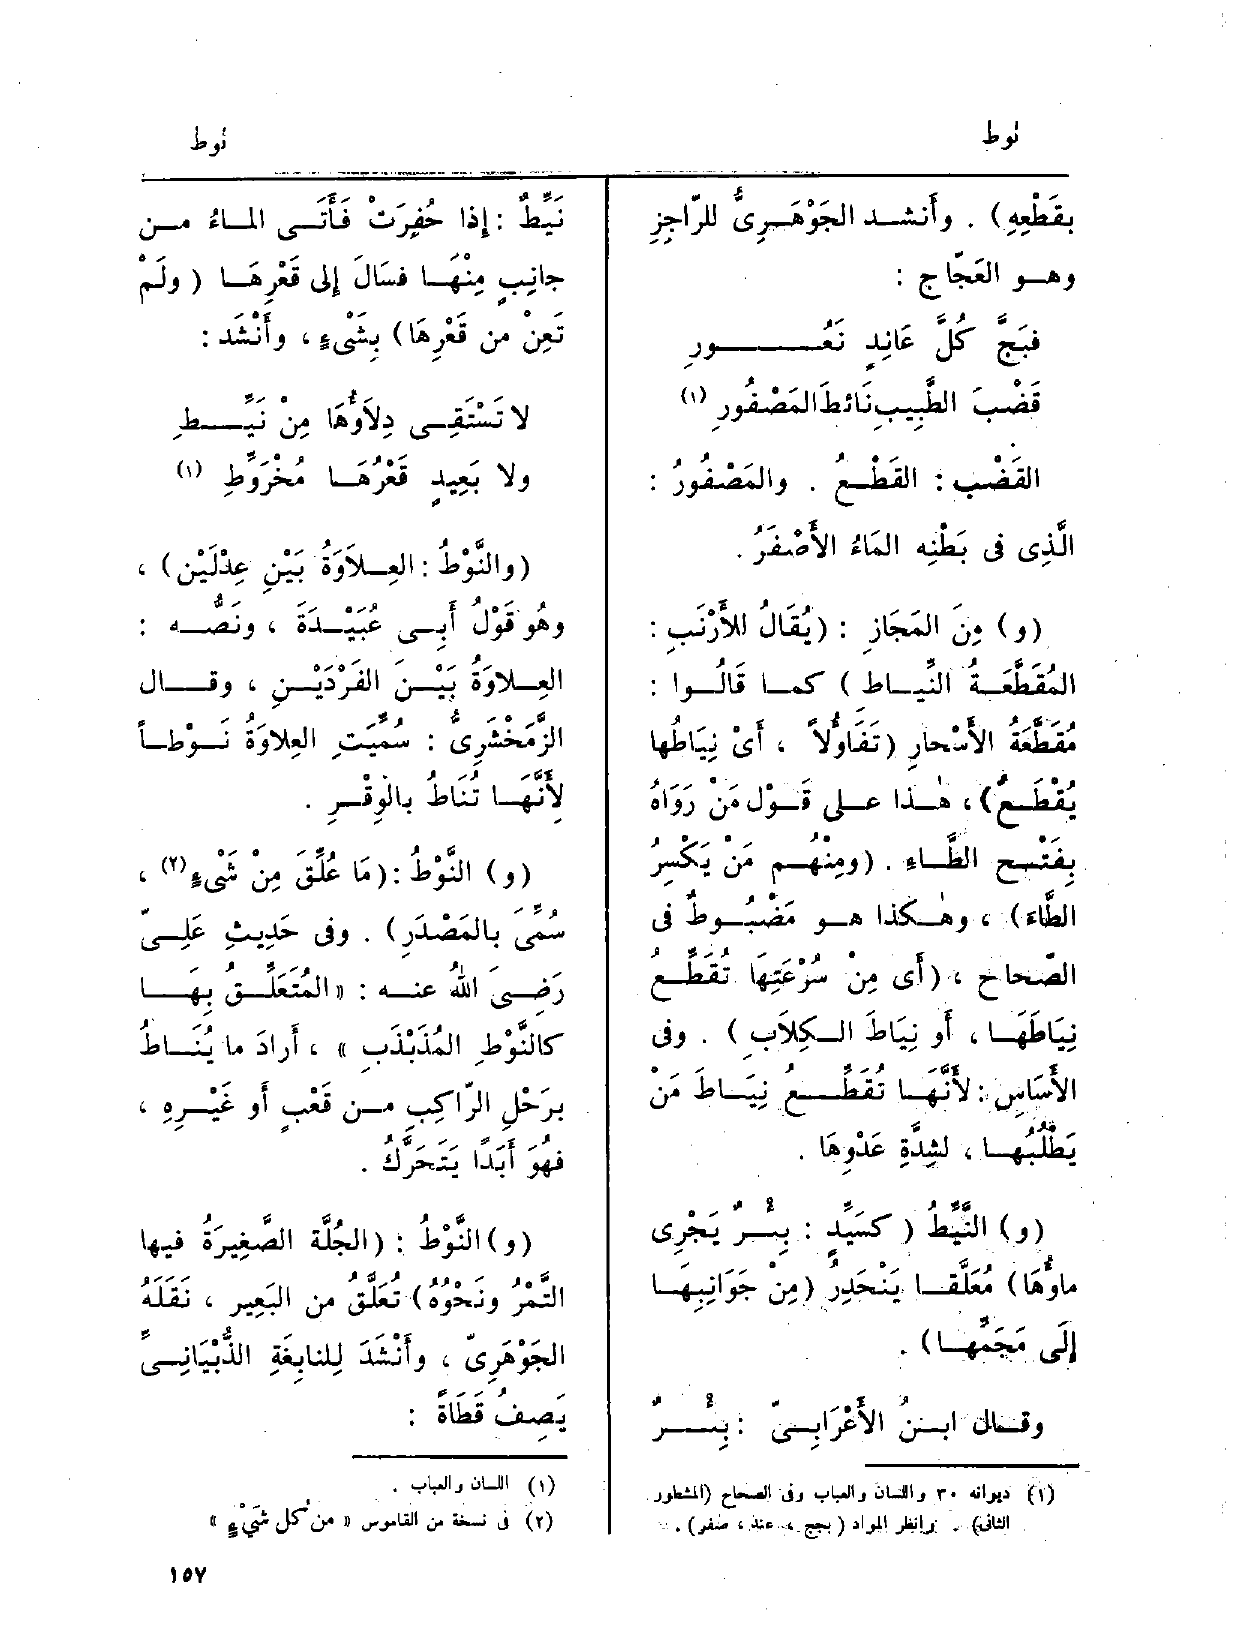 نوط
نوط
بقَطْعِهِ) . وأَنشـد الجَوْهَـرِىُّ للرّاجِزِ
وهـو العَجّاج :
فبَجَّ كُلَّ عَانِدٍ نَعُـــــورِ
قَضْبَ الطَّبِيبِ نَائطَ المَصْفُورِ (١)
القَضْب : القَطْـعُ . والمَصْفُورُ :
الَّذِى فى بَطْنِه المَاءُ الأَصْفَرُ .
(و) مِنَ المَجَازِ : (يُقَالُ للأَرْنَبِ :
المُقَطَّعَـةُ النِّيـاط ) كمـا قَالُـوا :
مُقَطَّعَةُ الأَسْحارِ (تَفَاؤُلاً ، أَىْ نِيَاطُها
يُقْطَـعُ) ، هٰـذا عـلى قَـوْل مَنْ رَوَاهُ
بِفَتْـح الطَّـاءِ . (ومِنْهُـم مَنْ يَكْسِرُ
الطّاءَ) ، وهٰـكذا هـو مَضْبُـوطٌ فى
الصّحاح ، (أَى مِنْ سُرْعَتِهَا تُقَطِّـعُ
نِيَاطَهَـا ، أَو نِيَاطَ الـكِلَابِ ) . وفى
الأَسَاسِ : لأَنَّهَـا تُقَطِّـــعُ نِيَـاطَ مَنْ
يَطْلُبُهَـا ، لشِدَّةِ عَدْوِهَا .
(و) النَّيِّطُ ( كسَيِّدٍ : بِئْـرٌ يَجْرِى
ماؤُهَا) مُعَلَّقـا يَنْحَدِرُ (مِنْ جَوَانِبِهَـا
إِلَى مَجَمِّهـا) .
وقـال ابـنُ الأَعْرَابِـىّ : بِئْـــرٌ
(١) ديوانه ٣٠ واللسان والعباب وفى الصحاح (المشطور
الثانى) . وانظر المواد ( بجج ، عند ، صفر) .
نَيِّطٌ : إِذا حُفِرَتْ فَأَتَـى المـاءُ مـن
جانِبٍ مِنْهَـا فسَالَ إِلى قَعْرِهَـا ( ولَمْ
تَعِنْ من قَعْرِهَا) بِشَىْءٍ ، وأَنْشَد :
لا تَسْتَقِـى دِلَاؤُهَا مِنْ نَيِّـــطِ
ولا بَعِيدٍ قَعْرُهَـا مُخْرَوِّطِ (١)
(والنَّوْطُ : العِـلَاوَةُ بَيْن عِدْلَيْن) ،
وهُو قَوْلُ أَبِـى عُبَيْـدَةَ ، ونَصُّـه :
العِـلَاوَةُ بَيْـنَ الفَرْدَيْـنِ ، وقـال
الزَّمَخْشَرِىُّ : سُمِّيَتِ العِلاوَةُ نَـوْطـاً
لأَنَّهَـا تُنَاطُ بالْوِقْـرِ .
(و) النَّوْطُ : (مَا عُلِّقَ مِنْ شَىْءٍ (٢) ،
سُمِّىَ بالمَصْدَرِ) . وفى حَدِيثِ عَلِـىّ
رَضِـىَ اللهُ عنـه : «المُتَعَلِّـقُ بِهَـا
كالنَّوْطِ المُذَبْذَبِ » ، أَرادَ ما يُنَـاطُ
برَحْلِ الرّاكِبِ مـن قَعْبٍ أَو غَيْـرِهِ ،
فهُوَ أَبَدًا يَتَحَرَّكُ .
(و) النَّوْطُ : (الجُلَّة الصَّغِيرَةُ فيها
التَّمْرُ ونَحْوُهُ) تُعَلَّقُ من البَعِيرِ ، نَقَلَهُ
الجَوْهَرِىّ ، وأَنْشَدَ لِلنابِغَةِ الذُّبْيَانِـىِّ
يَصِفُ قَطَاةً :
(١) اللسان والعباب .
(٢) فى نسخة من القاموس « من كل شَىْءٍ »
١٥٧